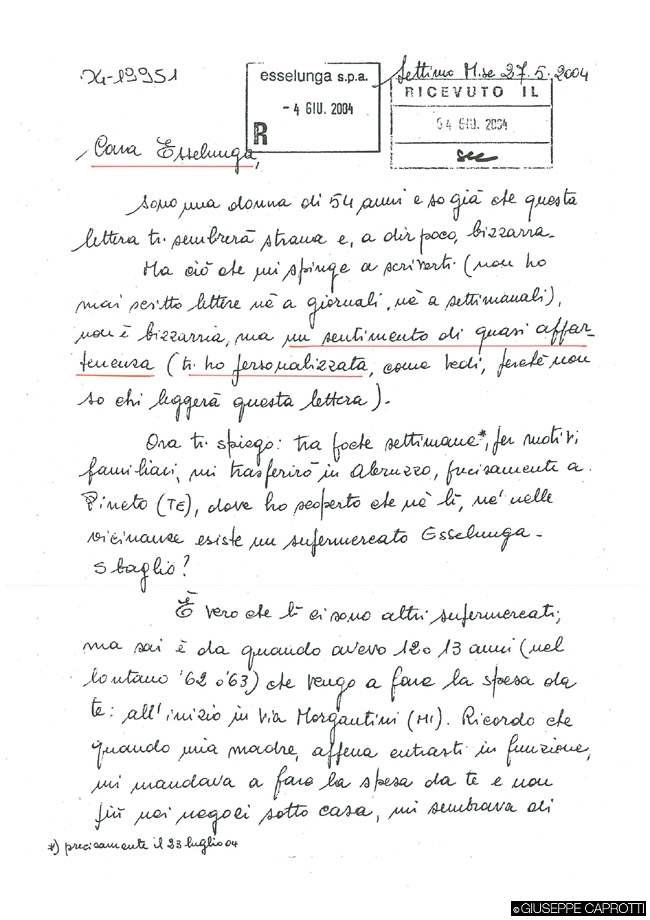 X4-19951
esselunga s.p.a.
- 4 GIU. 2004
R
Settimo M.se 27.5.2004
RICEVUTO IL
04 GIU. 2004
Cara Esselunga,
sono una donna di 54 anni e so già che questa
lettera ti sembrerà strana e, a dir poco, bizzarra.
Ma ciò che mi spinge a scriverti (non ho
mai scritto lettere nè a giornali, nè a settimanali),
non è bizzarria, ma un sentimento di quasi appar-
tenenza (ti ho personalizzata, come vedi, perchè non
so chi leggerà questa lettera).
Ora ti spiego: tra poche settimane*, per motivi
familiari, mi trasferirò in Abruzzo, precisamente a
Pineto (TE), dove ho scoperto che nè lì, nè nelle
vicinanze esiste un supermercato Esselunga -
Sbaglio?
È vero che lì ci sono altri supermercati,
ma sai è da quando avevo 12 o 13 anni (nel
lontano '62 o '63) che vengo a fare la spesa da
te: all'inizio in Via Morgantini (MI). Ricordo che
quando mia madre, appena entrasti in funzione,
mi mandava a fare la spesa da te e non
più nei negozi sotto casa, mi sembrava di
*) precisamente il 23 luglio 04
©GIUSEPPE CAPROTTI